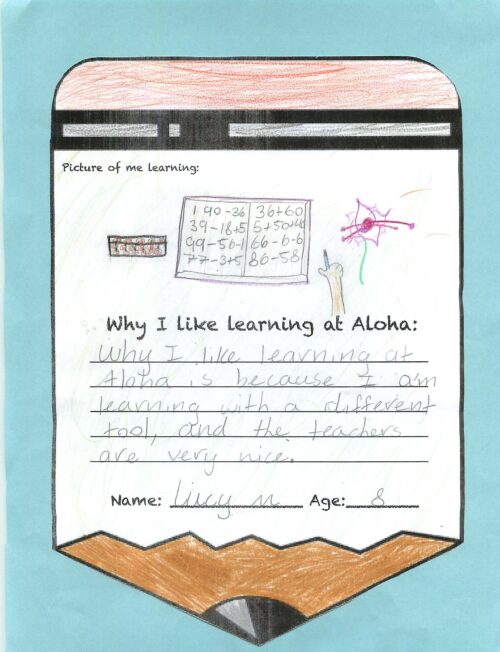 Picture of me learning:
1 90-36 36+60
39-18+5 5+50+46
99-56-1 66-6-6
77-3+5 86-58
Why I like learning at Aloha:
Why I like learning at
Aloha is because I am
learning with a different
tool, and the teachers
are very nice.
Name: Lucy n Age: 8